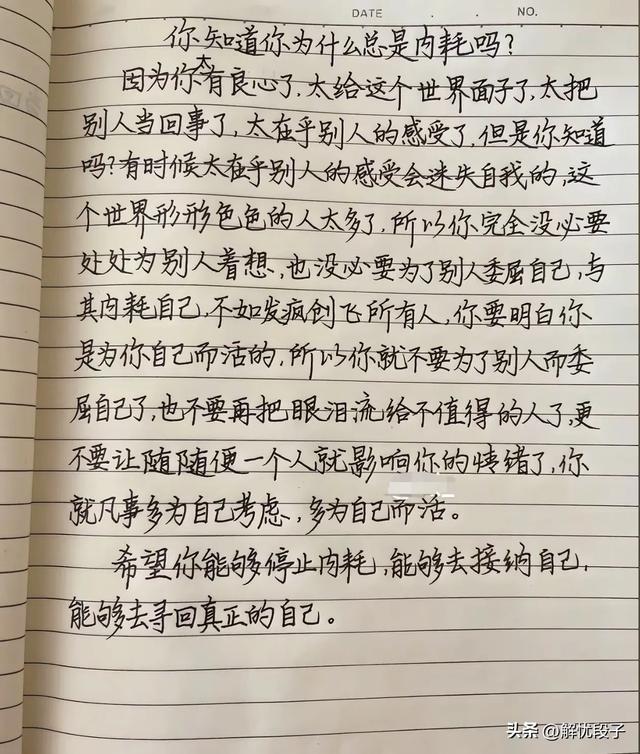 DATE . . NO.
你知道你为什么总是内耗吗?
因为你太有良心了,太给这个世界面子了,太把
别人当回事了,太在乎别人的感受了,但是你知道
吗?有时候太在乎别人的感受会迷失自我的,这
个世界形形色色的人太多了,所以你完全没必要
处处为别人着想,也没必要为了别人委屈自己,与
其内耗自己,不如发疯创飞所有人,你要明白你
是为你自己而活的,所以你就不要为了别人而委
屈自己了,也不要再把眼泪流给不值得的人了,更
不要让随随便一个人就影响你的情绪了,你
就凡事多为自己考虑,多为自己而活。
希望你能够停止内耗,能够去接纳自己,
能够去寻回真正的自己。
头条 @解忧段子